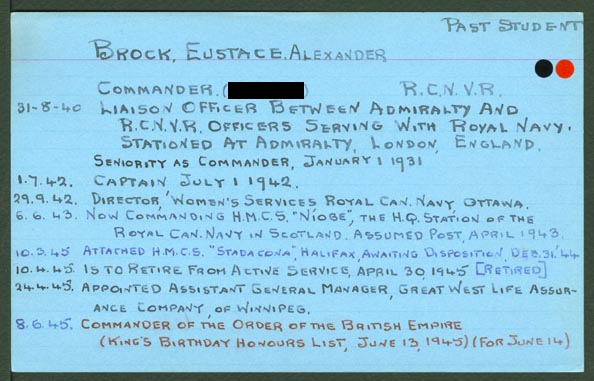 PAST STUDENT
BROCK, EUSTACE. ALEXANDER
COMMANDER. ( ) R.C.N.V.R.
31-8-40 LIAISON OFFICER BETWEEN ADMIRALTY AND
R.C.N.V.R. OFFICERS SERVING WITH ROYAL NAVY.
STATIONED AT ADMIRALTY, LONDON, ENGLAND.
SENIORITY AS COMMANDER, JANUARY 1 1931
1.7.42. CAPTAIN JULY 1 1942.
29.9.42. DIRECTOR, WOMEN'S SERVICES ROYAL CAN. NAVY, OTTAWA.
6.6.43. NOW COMMANDING H.M.C.S. "NIOBE", THE H.Q. STATION OF THE
ROYAL CAN. NAVY IN SCOTLAND. ASSUMED POST, APRIL 1943.
10.3.45 ATTACHED H.M.C.S. "STADACONA", HALIFAX, AWAITING DISPOSITION, DEB.31.'44
10.4.45. IS TO RETIRE FROM ACTIVE SERVICE, APRIL 30 1945 [RETIRED]
24.4.45. APPOINTED ASSISTANT GENERAL MANAGER, GREAT WEST LIFE ASSUR-
ANCE COMPANY, OF WINNIPEG.
8.6.45. COMMANDER OF THE ORDER OF THE BRITISH EMPIRE
(KING'S BIRTHDAY HONOURS LIST, JUNE 13, 1945) (FOR JUNE 14)